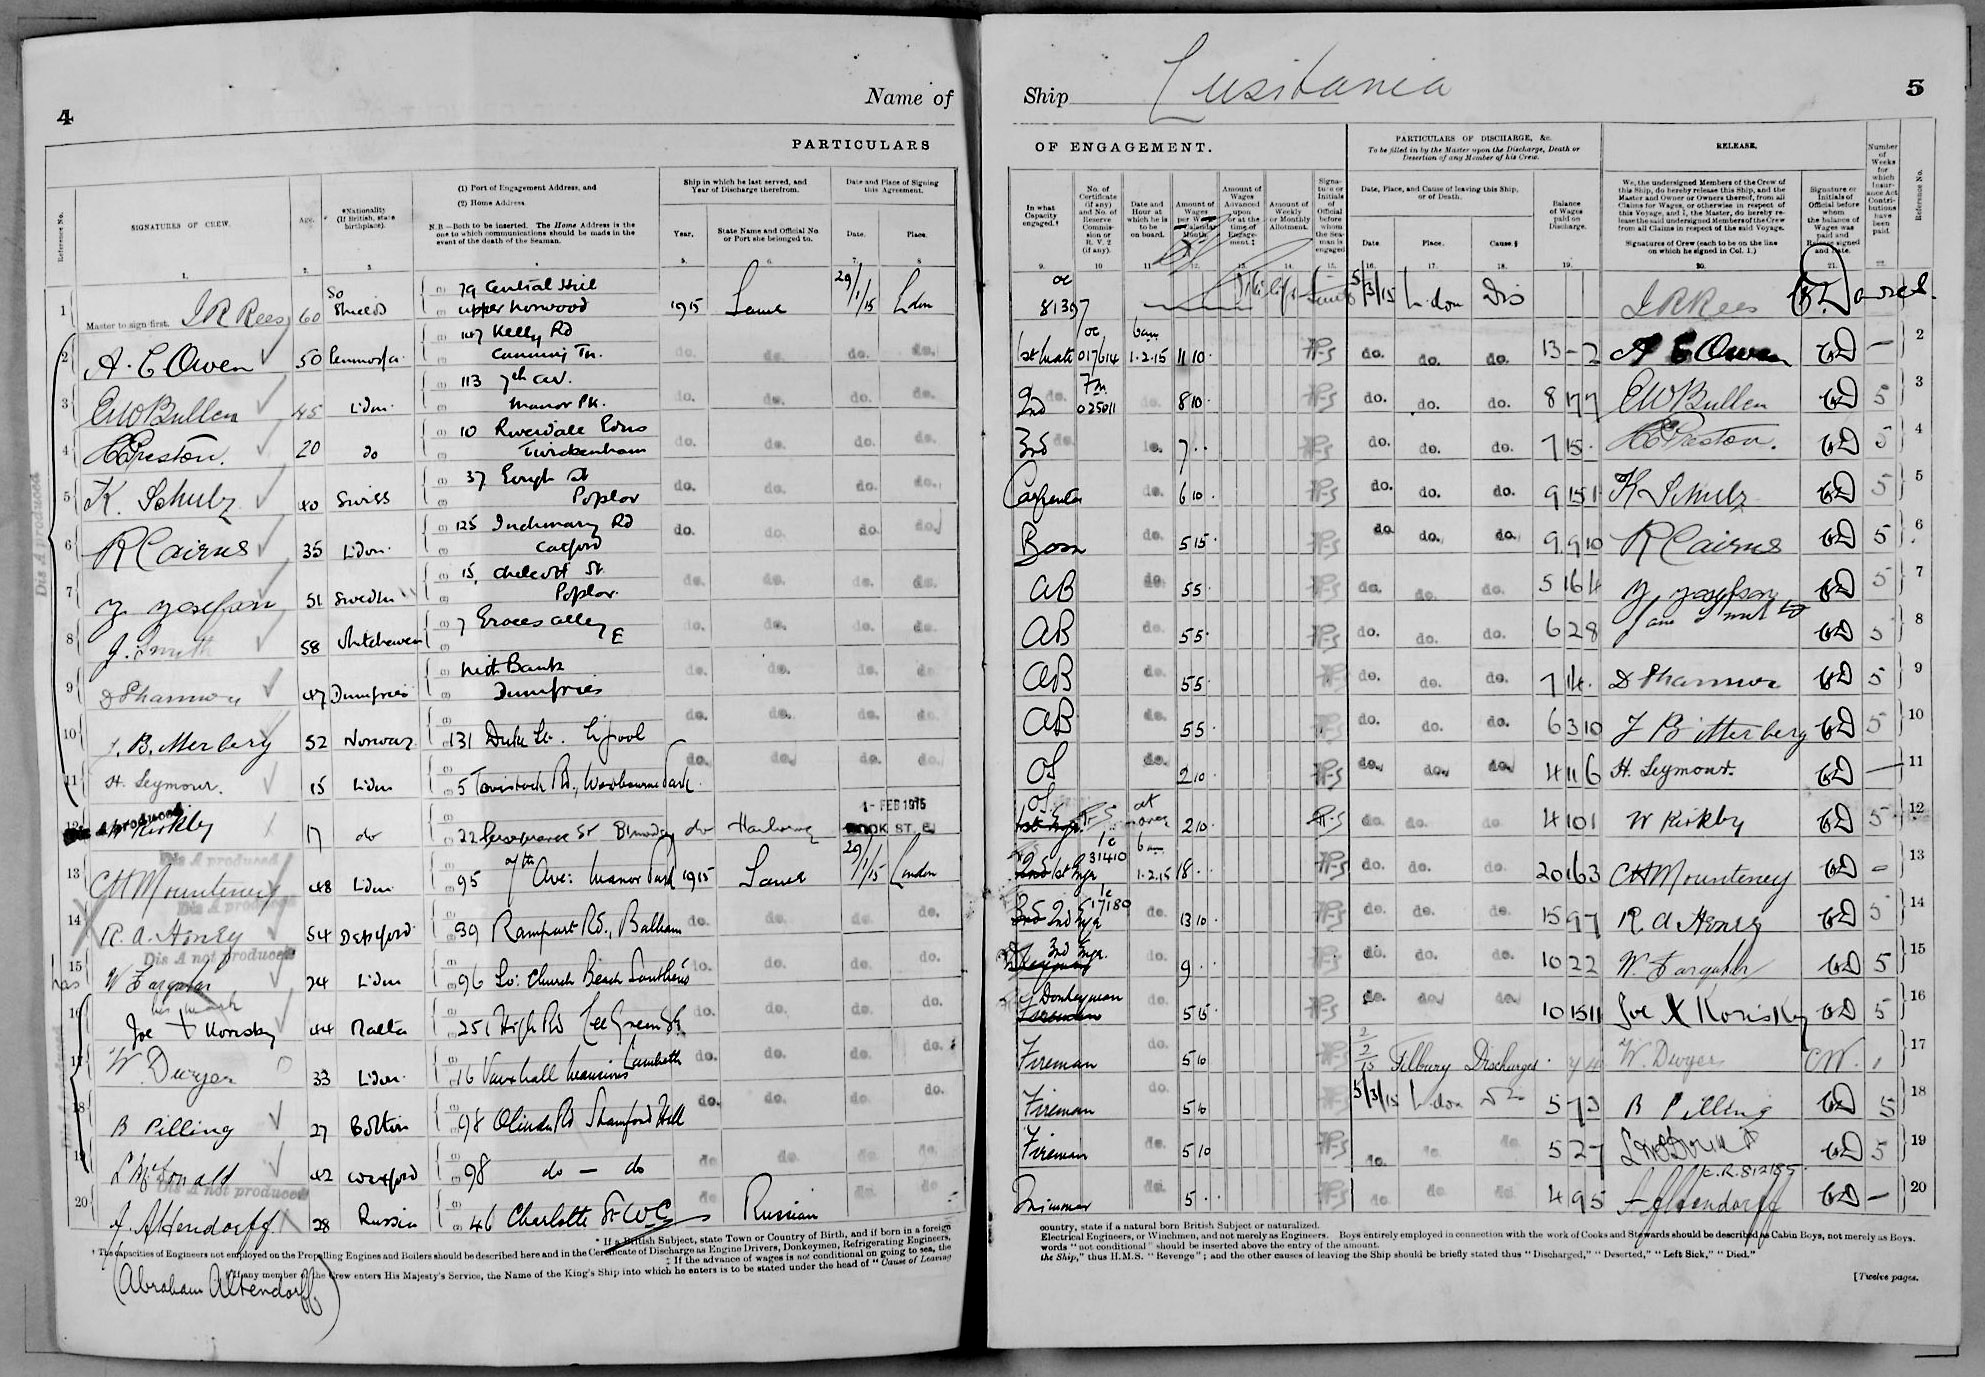 4
Name of
PARTICULARS
Reference No.
SIGNATURES OF CREW.
Age.
*Nationality
(If British, state
birthplace).
(1) Port of Engagement Address, and
(2) Home Address
N.B.—Both to be inserted. The Home Address is the
one to which communications should be made in the
event of the death of the Seaman.
Ship in which he last served, and
Year of Discharge therefrom.
Year.
State Name and Official No.
or Port she belonged to.
Date and Place of Signing
this Agreement.
Date.
Place.
1. 2. 3. 5. 6. 7. 8
1 Master to sign first. J R Rees 60 So Shields 79 Central Hill
Upper Norwood 1915 Same 29/1/15 Ldon
2 A. E Owen 50 147 Kelly Rd
Canning Tn. do. do. do. do.
3 E W Bullen 45 Ldon 113 7th Av.
Manor Pk. do. do. do. do.
4 H C Preston. 20 do 10 Riverdale Gdns
Twickenham do. do. do. do.
5 K. Schulz 40 Swiss 37 Gough St
Poplar do. do. do. do.
6 R Cairns 35 Ldon. 125 Inchmary Rd
Catford do. do. do. do.
7 51 Sweden 15, Chilcott St.
Poplar. do. do. do. do.
8 J. Smith 58 7 Alley E do. do. do. do.
9 D Shannon 47 Dumfries Nith Bank
Dumfries do. do. do. do.
10 52 Norway 131 Duke St. L'pool do. do. do. do.
11 H. Seymour. 15 Ldon 5 Tavistock Rd., Westbourne Park. do. do. do. do.
12 W Kirkby 17 do 22 St do 1 - FEB 1915
DOCK ST. E.
Dis A produced
13 C H Mounteney 48 Ldon 95 7th Ave: Manor Park 1915 Same 29/1/15 London
Dis A produced
14 R. A. Henry 54 Deptford 39 Rampart Rd., Balham do. do. do. do.
Dis A not produced
15 W Farquhar 24 Ldon 96 So: Church Beach Southend do. do. do. do.
16 Joe + Korisky his mark 44 Malta 251 High Rd Lee Green SE do. do. do. do.
17 W. Dwyer 33 Ldon 16 Vauxhall Mansions Lambeth do. do. do. do.
18 B Pilling 27 Bolton 98 Olinda Rd Stamford Hill do. do. do. do.
19 L McDonald 42 Wexford 98 do — do do do. do. do
Dis A not produced
20 A. Altendorff 28 Russia 46 Charlotte St W.C. do Russian do do
* If a British Subject, state Town or Country of Birth, and if born in a foreign
† The capacities of Engineers not employed on the Propelling Engines and Boilers should be described here and in the Certificate of Discharge as Engine Drivers, Donkeymen, Refrigerating Engineers,
‡ If the advance of wages is not conditional on going to sea, the
§ If any member of the Crew enters His Majesty's Service, the Name of the King's Ship into which he enters is to be stated under the head of "Cause of Leaving
(Abraham Altendorff)
Ship Lusitania
5
OF ENGAGEMENT.
In what
Capacity
engaged.†
No. of
Certificate
(if any)
and No. of
Reserve
Commis-
sion or
R. V. 2
(if any).
Date and
Hour at
which he is
to be
on board.
Amount of
Wages
per Week or
Calendar
Month.
Amount of
Wages
Advanced
upon
or at the
time of
Engage-
ment.‡
Amount of
Weekly
or Monthly
Allotment.
Signa-
ture or
Initials
of
Official
before
whom
the Sea-
man is
engaged
PARTICULARS OF DISCHARGE, &c.
To be filled in by the Master upon the Discharge, Death or
Desertion of any Member of his Crew.
Date, Place, and Cause of leaving this Ship,
or of Death.
Date.
Place.
Cause.§
Balance
of Wages
paid on
Discharge.
RELEASE.
We, the undersigned Members of the Crew of
this Ship, do hereby release this Ship, and the
Master and Owner or Owners thereof, from all
Claims for Wages, or otherwise in respect of
this Voyage, and I, the Master, do hereby re-
lease the said undersigned Members of the Crew
from all Claims in respect of the said Voyage.
Signatures of Crew (each to be on the line
on which he signed in Col. 1.)
Signature or
Initials of
Official before
whom
the balance of
Wages was
paid and
Release signed
and Date.
Number
of
Weeks
for
which
Insur-
ance Act
Contri-
butions
have
been
paid
Reference No.
9. 10 11 12. 13. 14. 15. 16. 17. 18. 19. 20. 21. 22.
oc
81397 5/3/15 Ldon Dis J R Rees
1st Mate oc 017614 6am 1.2.15 11 10 do. do. do. 13 - 2 A E Owen — 2
2nd 025011 do. 8 10 do. do. do. 8 17 7 E W Bullen 5 3
3rd do. 7 . . do. do. do. 7 15 H C Preston. 5 4
Carpenter do. 6 10 do. do. do. 9 15 1 K Schulz 5 5
Bosn do. 5 15 do. do. do. 9 9 10 R Cairns 5 6
AB do. 5 5 do. do. do. 5 16 4 5 7
AB do. 5 5 do. do. do. 6 2 8 5 8
AB do. 5 5 do. do. do. 7 14 D Shannon 5 9
AB do. 5 5 do. do. do. 6 3 10 5 10
OS do. 2 10 do. do. do. 4 11 6 H. Seymour. — 11
OS at once 2 10 do. do. do. 4 10 1 W Kirkby 5 12
1st Engr 31410 6am 1.2.15 18 . do. do. do. 20 16 3 C H Mounteney — 13
2nd Engr 17180 do. 13 10 do. do. do. 15 9 7 R A Henry 5 14
3rd Engr. do. 9 do. do. do. 10 2 2 W Farquhar 5 15
Donkeyman
Fireman do. 5 15 do. do. do. 10 15 11 Joe X Korisky 5 16
Fireman do. 5 10 2/2/15 Tilbury Discharged W. Dwyer 17
Fireman do. 5 10 5/3/15 Ldon B Pilling 5 18
Fireman do. 5 10 do. do. do. 5 2 7 5 19
Trimmer do. 5 . . do. do. do. 4 9 5 A Altendorff — 20
country, state if a natural born British Subject or naturalized.
Electrical Engineers, or Winchmen, and not merely as Engineers. Boys entirely employed in connection with the work of Cooks and Stewards should be described as Cabin Boys, not merely as Boys.
words "not conditional" should be inserted above the entry of the amount.
the Ship," thus H.M.S. "Revenge"; and the other causes of leaving the Ship should be briefly stated thus "Discharged," "Deserted," "Left Sick," "Died."
[Twelve pages.